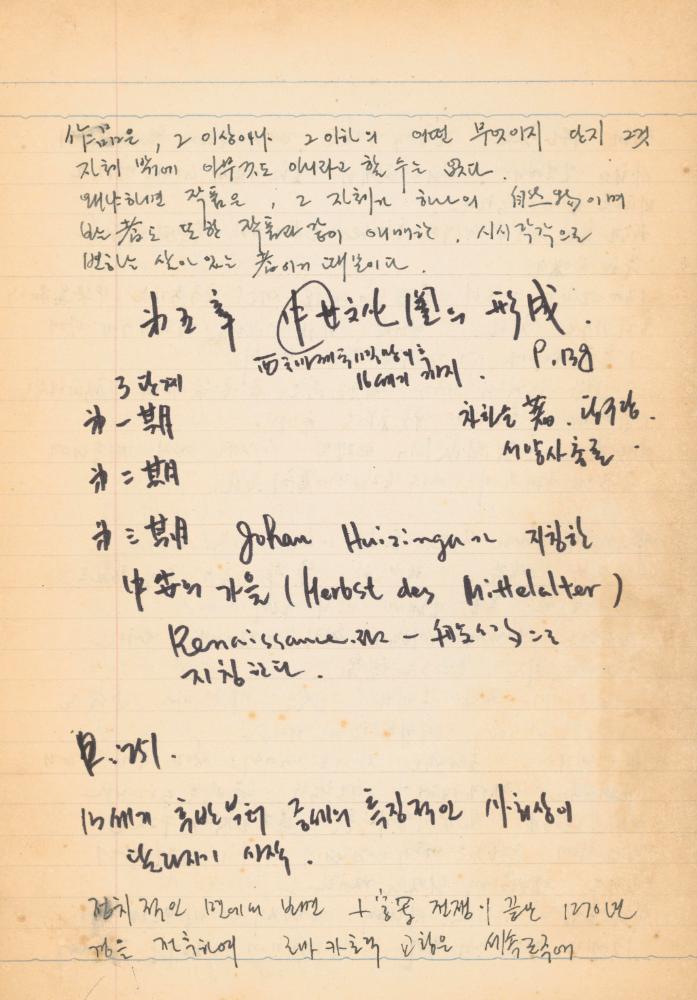 作品은, 그 이상이나 그 이하의 어떤 무엇이지 단지 그것
자체 밖에 아무것도 아니라고 할 수는 없다.
왜냐하면 작품은, 그 자체가 하나의 自然物이며
보는 者도 또한 작품과 같이 애매한, 시시각각으로
변하는 살아있는 者이기 때문이다.
第五章 中世文化圈의 形成.
16세기 까지. P. 138
3단계
第一期 차하순 著.
서양사총론.
第二期
第三期 Johan Huizinga가 지칭한
中世의 가을 (Herbst des Mittelalter)
Renaissance라고 一般的으로
지칭한다.
P. 251.
13세기 후반부터 중세의 특징적인 사회상이
달라지기 시작.
정치적인 면에서 보면 十字軍 전쟁이 끝난 1270년
경을 전후하여 로마 카토릭 교황은 세속군주에